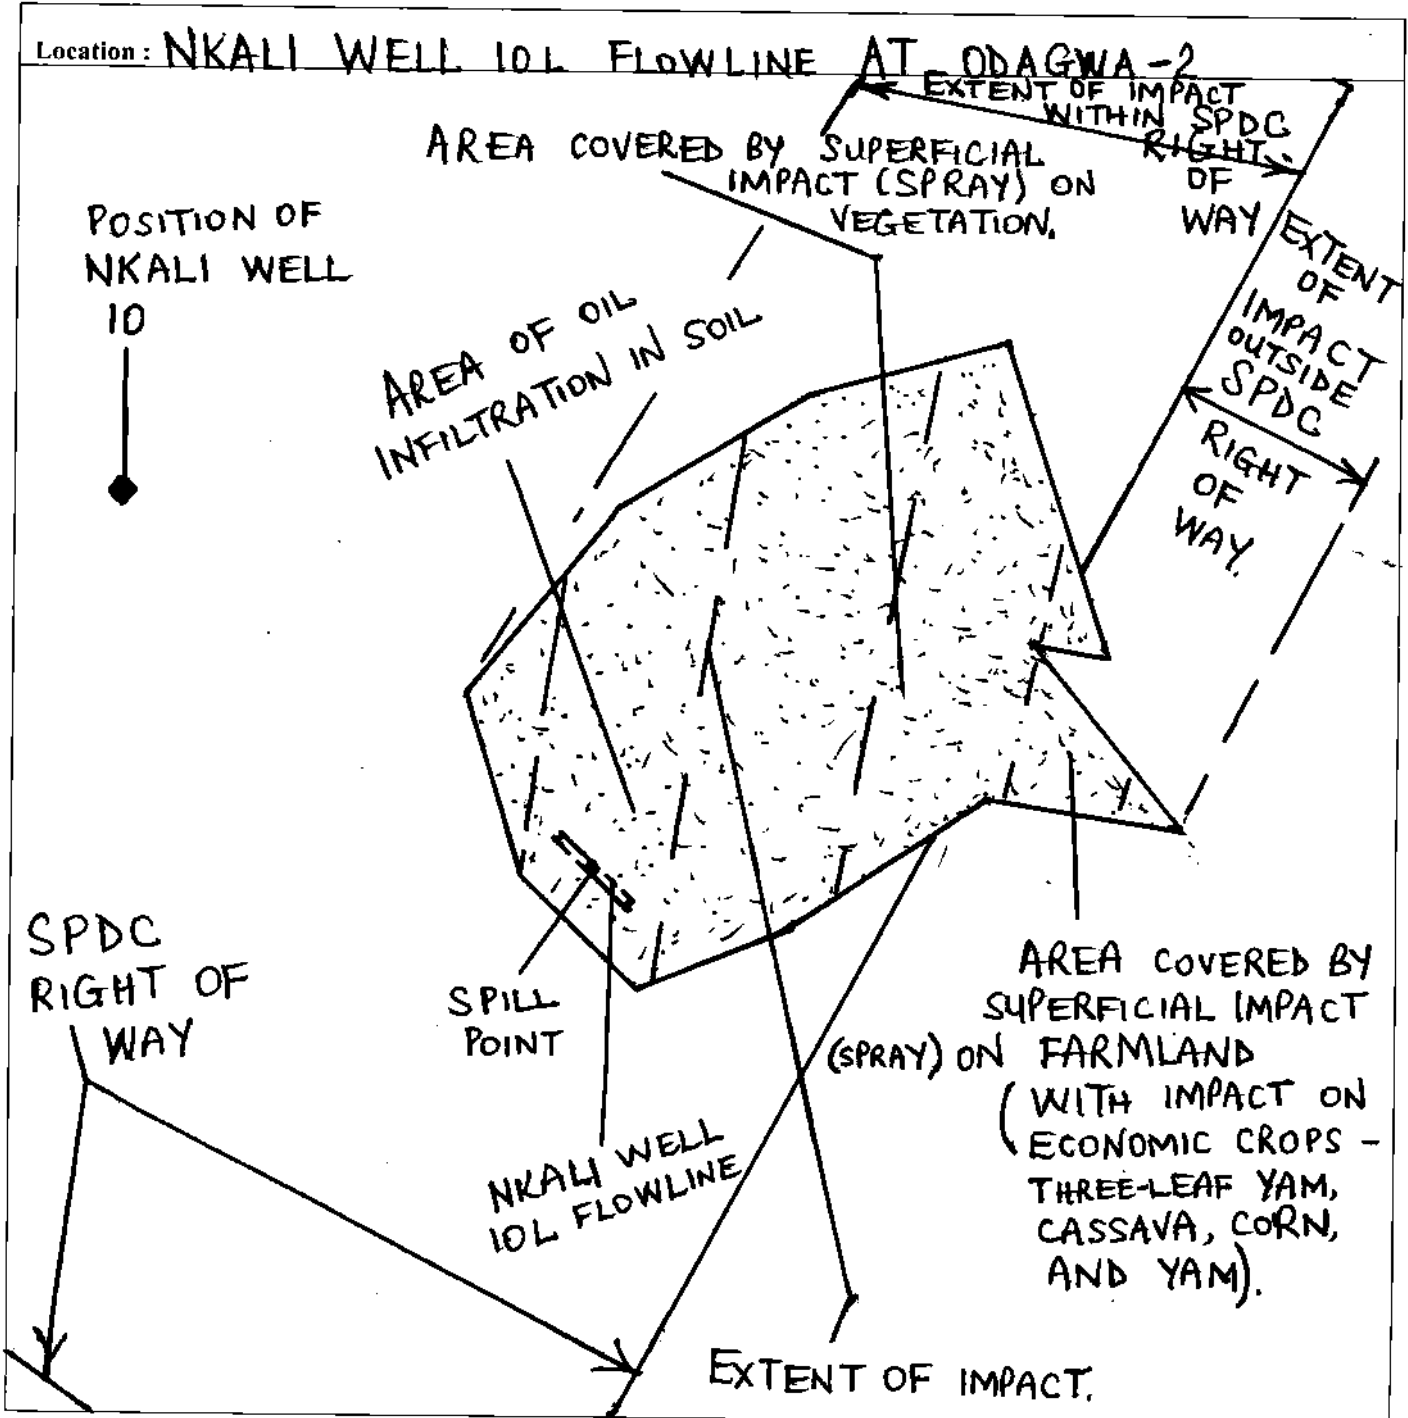 Location : NKALI WELL 10L FLOWLINE AT ODAGWA-2
EXTENT OF IMPACT
WITHIN SPDC
RIGHT
OF
WAY
AREA COVERED BY SUPERFICIAL
IMPACT (SPRAY) ON
VEGETATION.
POSITION OF
NKALI WELL
10
EXTENT
OF
IMPACT
OUTSIDE
SPDC
RIGHT
OF
WAY.
AREA OF OIL
INFILTRATION IN SOIL
SPDC
RIGHT OF
WAY
SPILL
POINT
NKALI WELL
10L FLOWLINE
AREA COVERED BY
SUPERFICIAL IMPACT
(SPRAY) ON FARMLAND
(WITH IMPACT ON
ECONOMIC CROPS -
THREE-LEAF YAM,
CASSAVA, CORN,
AND YAM).
EXTENT OF IMPACT.